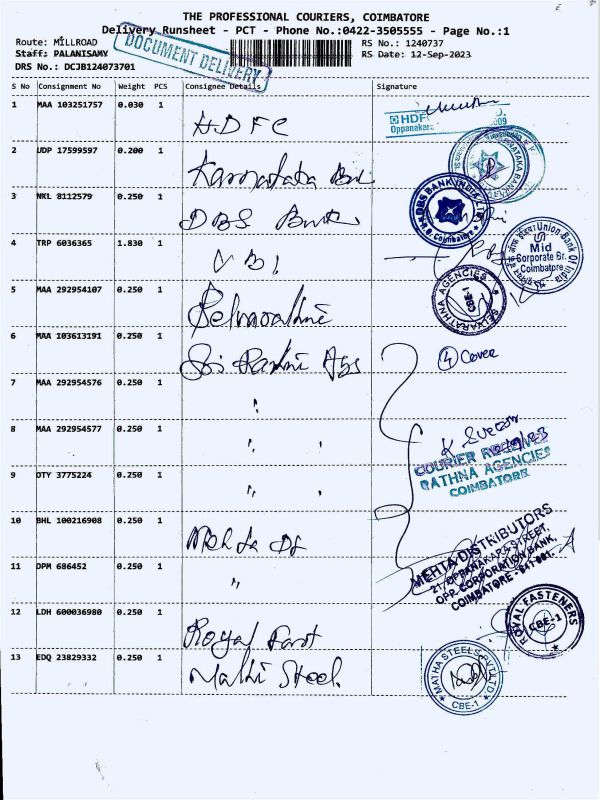 THE PROFESSIONAL COURIERS, COIMBATORE
Delivery Runsheet - PCT - Phone No.:0422-3505555 - Page No.:1
Route: MILLROAD
Staff: PALANISAMY
DRS No.: DCJB124073701
DOCUMENT DELIVERY
RS No.: 1240737
RS Date: 12-Sep-2023
S No Consignment No Weight PCS Consignee Details Signature
1 MAA 103251757 0.030 1 HDFC
HDF
Oppanakara
2 UDP 17599597 0.200 1 Karnataka
3 NKL 8112579 0.250 1 DBS Bank
DBS BANK INDIA
Coimbatore
4 TRP 6036365 1.830 1 UBI
Union Bank Of India
Mid
Corporate Br.
Coimbatore.
5 MAA 292954107 0.250 1 Selvarathni
SELVARATHNA AGENCIES
CBE-1
6 MAA 103613191 0.250 1 Sri Rathni Ags
4 Cover
7 MAA 292954576 0.250 1 "
8 MAA 292954577 0.250 1 " "
COURIER RECEIVED
RATHNA AGENCIES
COIMBATORE
9 OTY 3775224 0.250 1 " "
10 BHL 100216908 0.250 1 Mehta Ds
MEHTA DISTRIBUTORS
21, OPPANAKARA STREET,
OPP. CORPORATION BANK,
COIMBATORE - 641 001.
11 DPM 686452 0.250 1 "
12 LDH 600036980 0.250 1 Royal Fast
ROYAL FASTENERS
CBE-1
13 EDQ 23829332 0.250 1 Mathi Steel.
MATHA STEELS PVT LTD
CBE-1